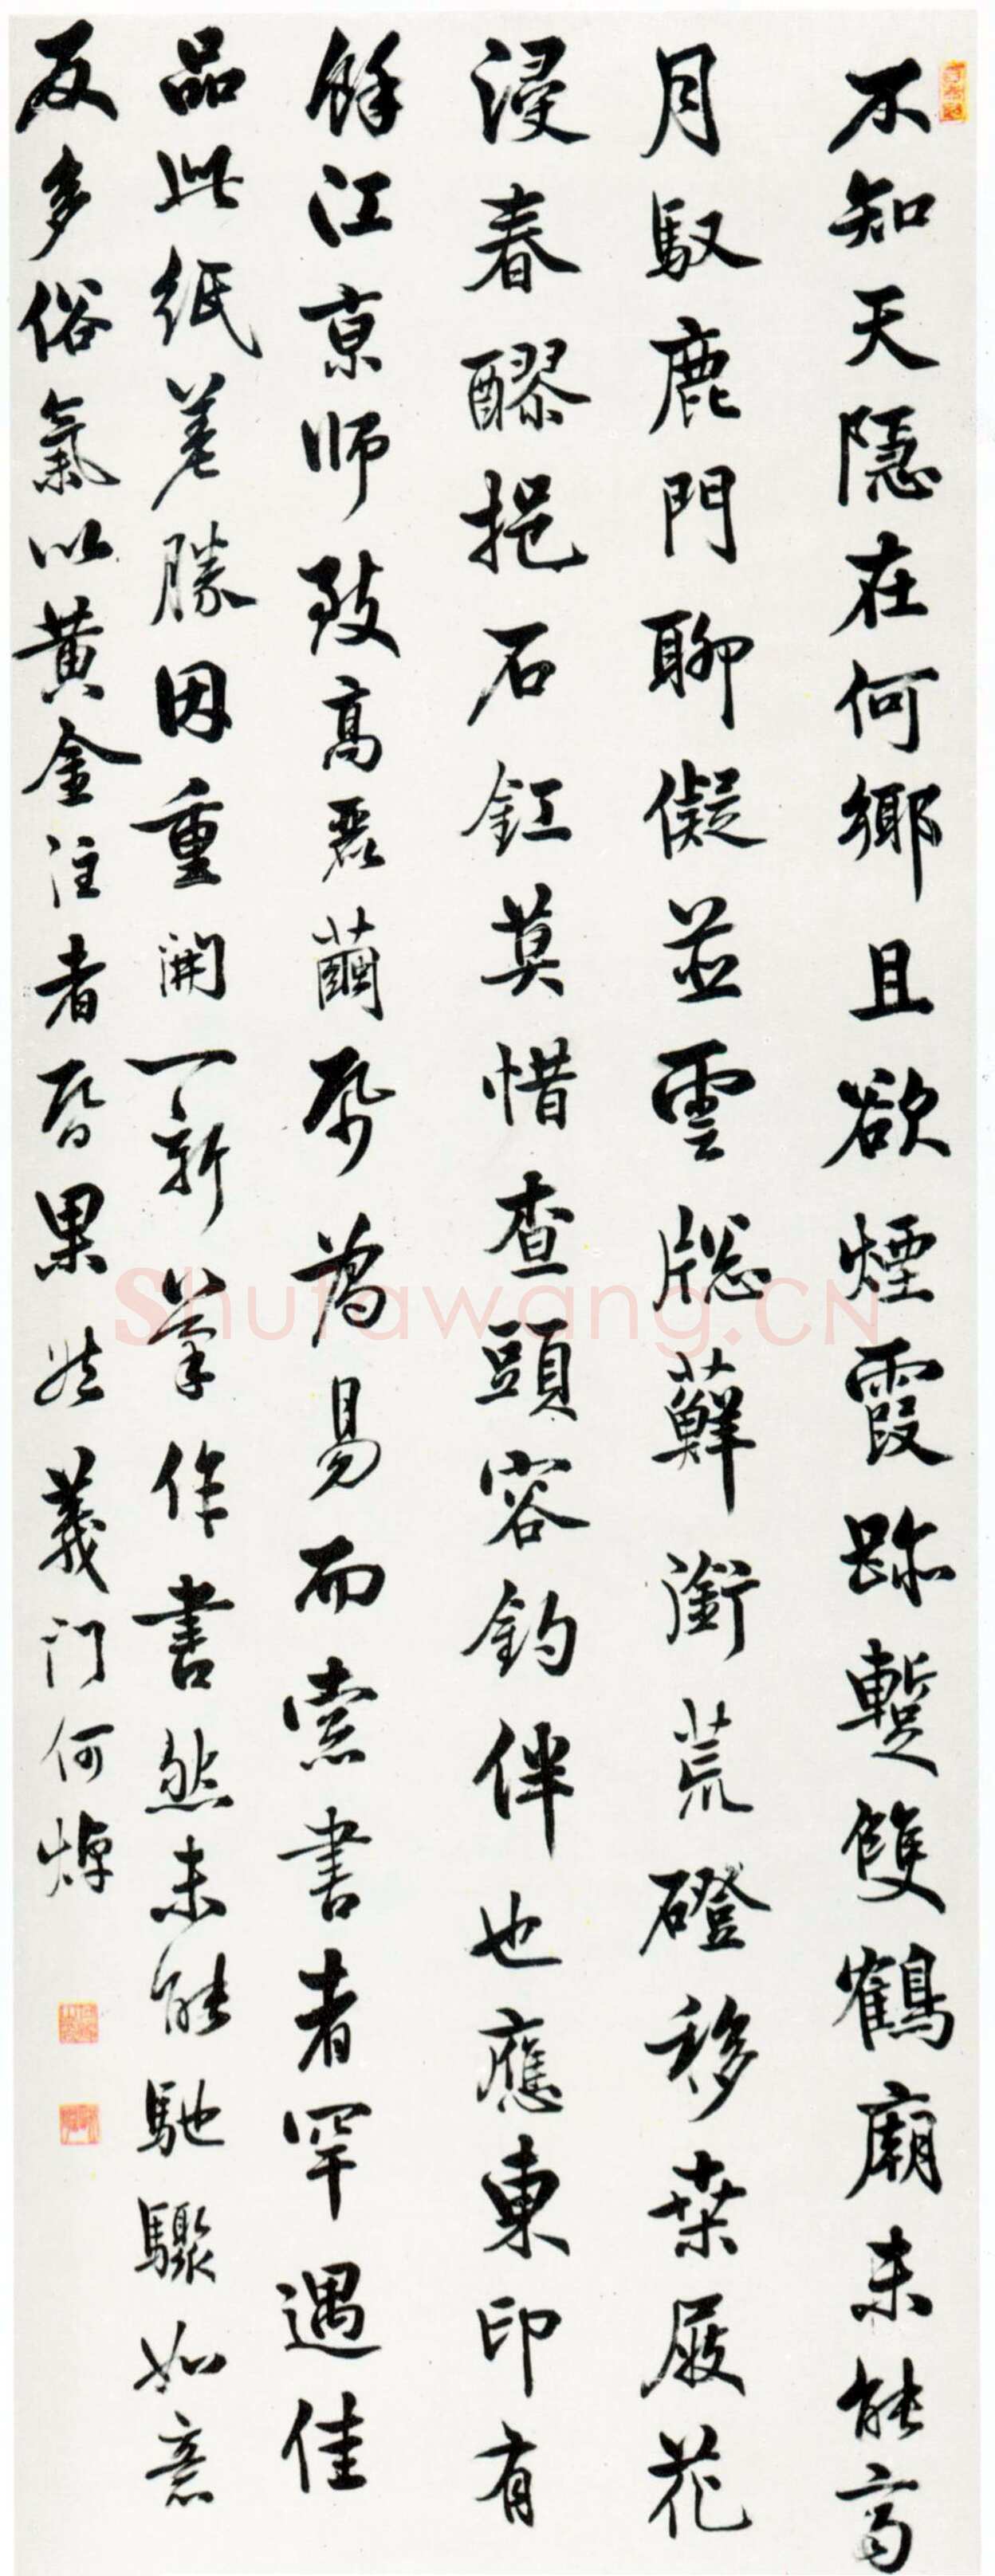 不知天隱在何鄉且欲煙霞跡蹔雙鶴廟未能高
月馭鹿門聊儗並雲牕蘚銜荒磴移桒屐花
浸春醪挹石釭莫惜查頭容釣伴也應東印有
餘江京師致高麗繭帋為易而索書者罕遇佳
品此紙差勝因重開一新筆作書然未能馳驟如意
反多俗氣以黃金注者昏果然義门何焯
Shufawang.CN